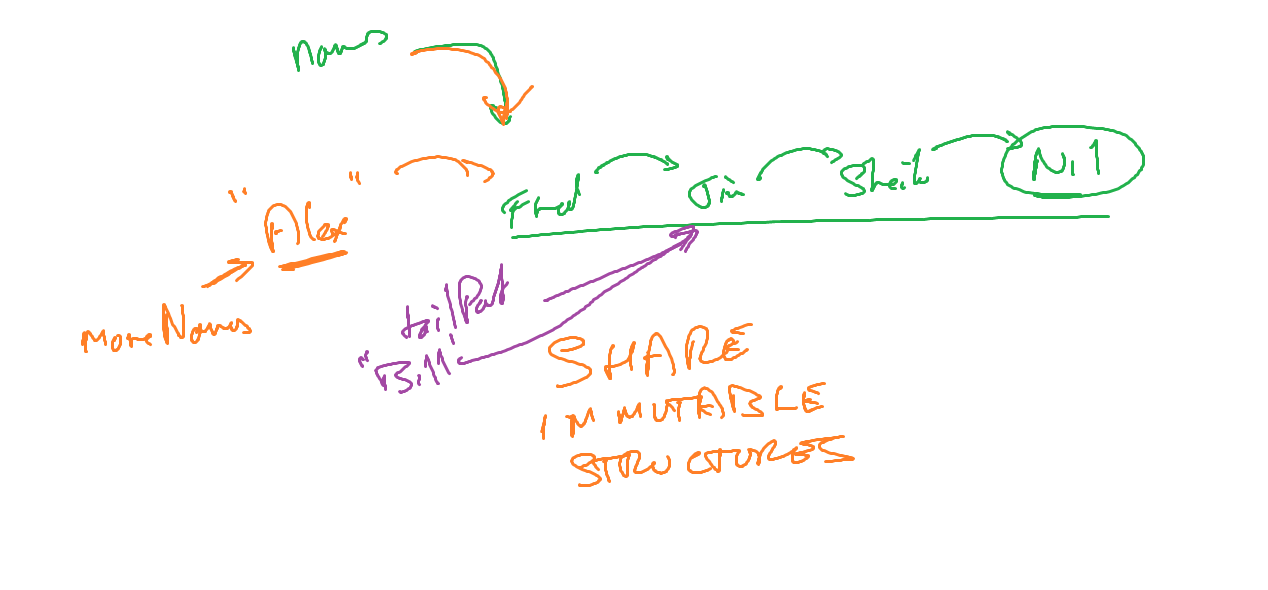 Names
Fred Jim Sheila Nil
"Alex"
moreNames
tailPart
"Bill"
SHARE
IMMUTABLE
STRUCTURES